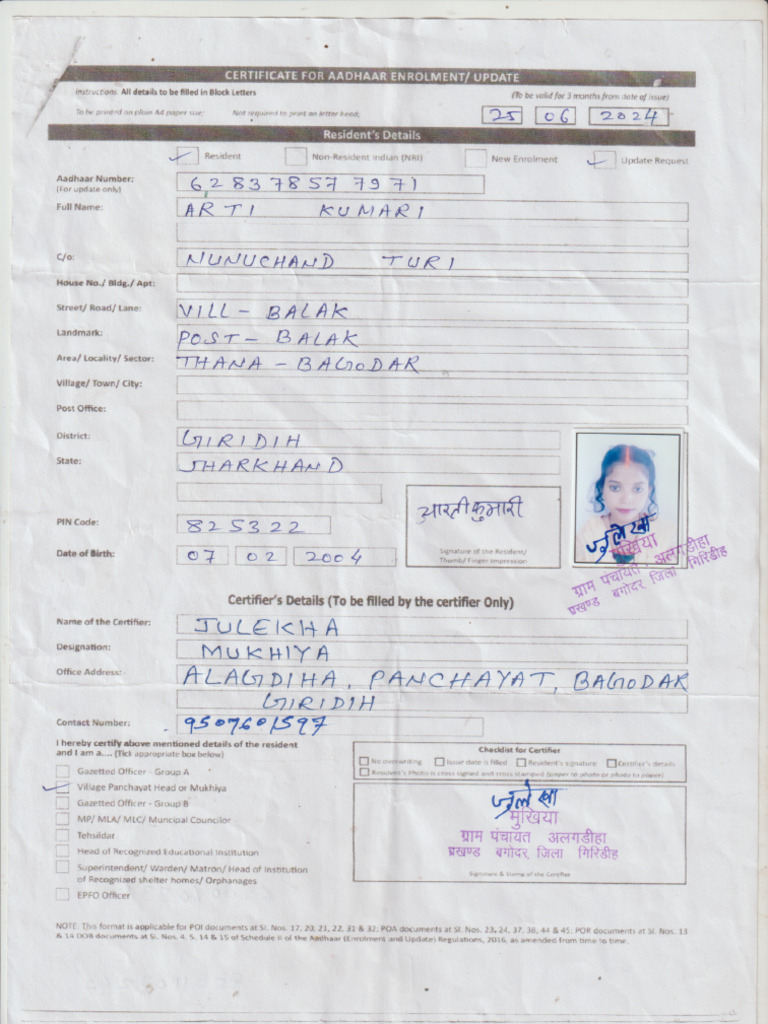 CERTIFICATE FOR AADHAAR ENROLMENT/ UPDATE
Instructions: All details to be filled in Block Letters
(To be valid for 3 months from date of issue)
To be printed on plain A4 paper size; Not required to print on letter head;
25 06 2024
Resident's Details
Resident Non-Resident Indian (NRI) New Enrolment Update Request
Aadhaar Number: 628378577971
(For update only)
Full Name: ARTI KUMARI
C/o: NUNUCHAND TURI
House No./ Bldg./ Apt:
Street/ Road/ Lane: VILL - BALAK
Landmark: POST - BALAK
Area/ Locality/ Sector: THANA - BAGODAR
Village/ Town/ City:
Post Office:
District: GIRIDIH
State: JHARKHAND
आरती कुमारी
PIN Code: 825322
Signature of the Resident/
Thumb/ Finger Impression
Date of Birth: 07 02 2004
जुलेखा
मुखिया
ग्राम पंचायत अलगडीहा
प्रखण्ड बगोदर, जिला गिरिडीह
Certifier's Details (To be filled by the certifier Only)
Name of the Certifier: JULEKHA
Designation: MUKHIYA
Office Address: ALAGDIHA, PANCHAYAT, BAGODAR
GIRIDIH
Contact Number: 9507601597
I hereby certify above mentioned details of the resident
and I am a.... (Tick appropriate box below)
Gazetted Officer - Group A
Village Panchayat Head or Mukhiya
Gazetted Officer - Group B
MP/ MLA/ MLC/ Muncipal Councilor
Tehsildar
Head of Recognized Educational Institution
Superintendent/ Warden/ Matron/ Head of Institution
of Recognized shelter homes/ Orphanages
EPFO Officer
Checklist for Certifier
No overwriting Issue date is filled Resident's signature Certifier's details
Resident's Photo is cross signed and cross stamped (paper to photo or photo to paper)
जुलेखा
मुखिया
ग्राम पंचायत अलगडीहा
प्रखण्ड बगोदर, जिला गिरिडीह
Signature & Stamp of the Certifier
NOTE: This format is applicable for POI documents at Sl. Nos. 17, 20, 21, 22, 31 & 32; POA documents at Sl. Nos. 23, 24, 37, 38, 44 & 45; POR documents at Sl. Nos. 13
& 14 DOB documents at Sl. Nos. 4, 5, 14 & 15 of Schedule II of the Aadhaar (Enrolment and Update) Regulations, 2016, as amended from time to time.